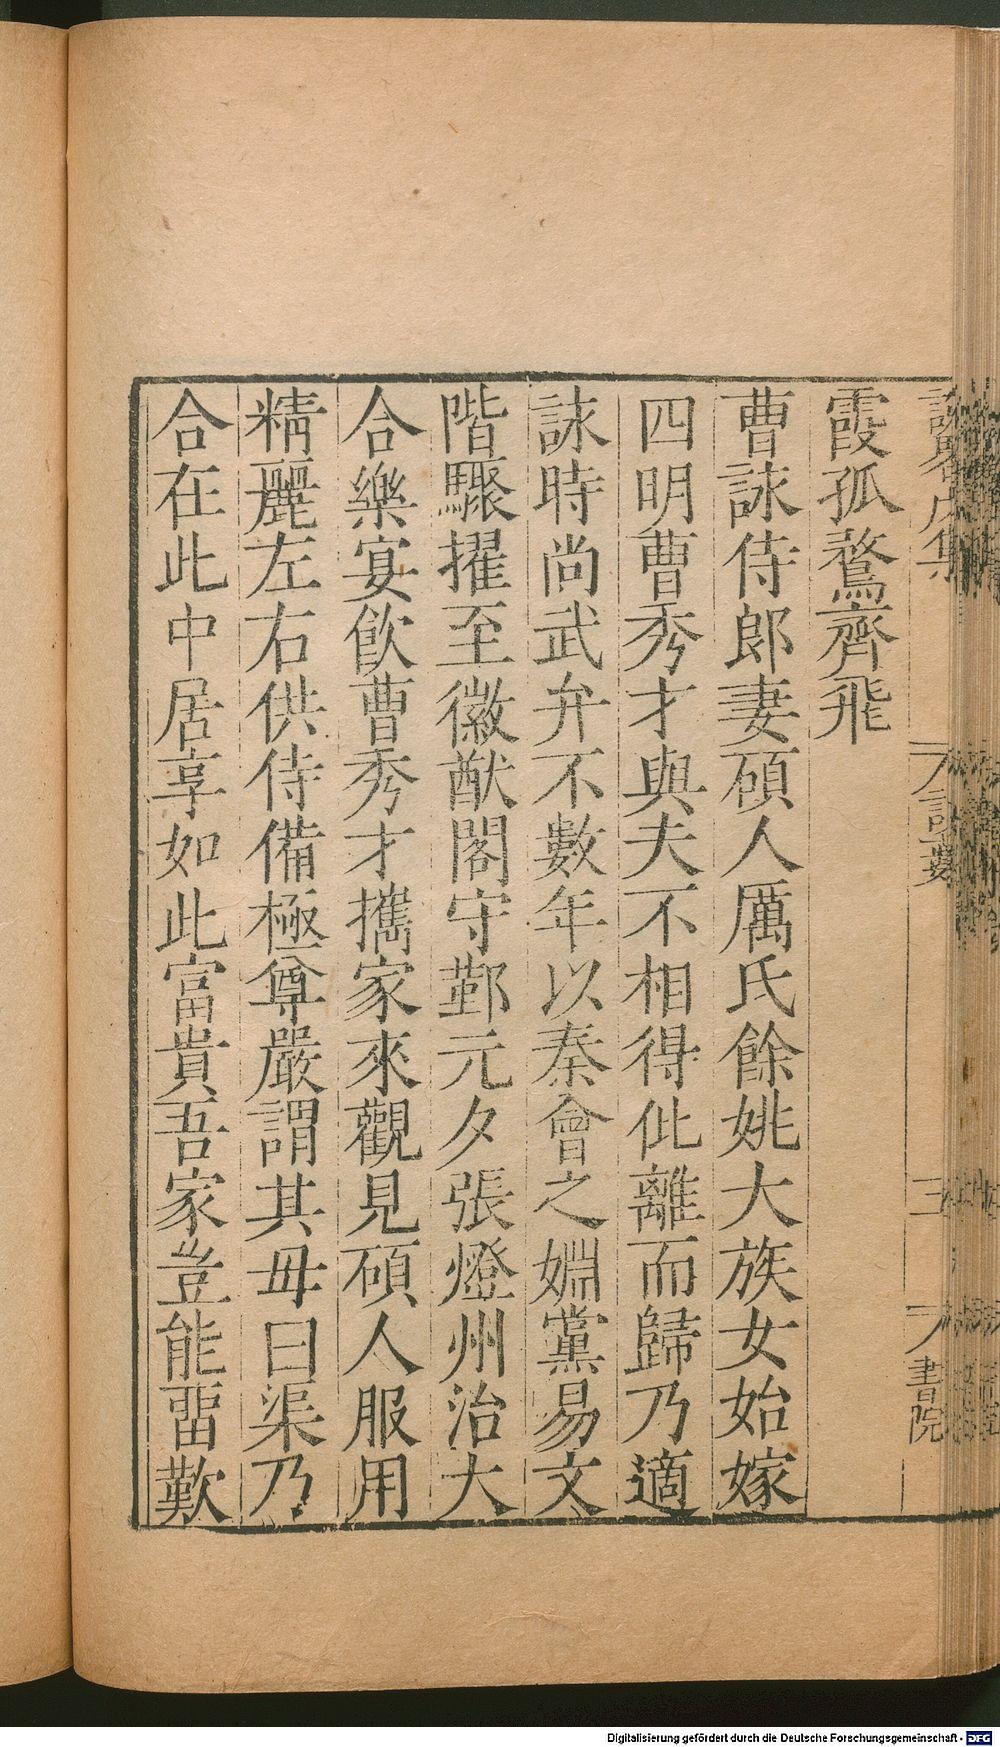 霞孤鶩齊飛
曹詠侍郎妻碩人厲氏餘姚大族女始嫁
四明曹秀才與夫不相得仳離而歸乃適
詠時尚武弁不數年以秦會之姻黨易文
階驟擢至徽猷閣守鄞元夕張燈州治大
合樂宴飲曹秀才攜家來觀見碩人服用
精麗左右供侍備極尊嚴謂其毋曰渠乃
合在此中居享如此富貴吾家豈能畱歎
三
書院
Digitalisierung gefördert durch die Deutsche Forschungsgemeinschaft - DFG